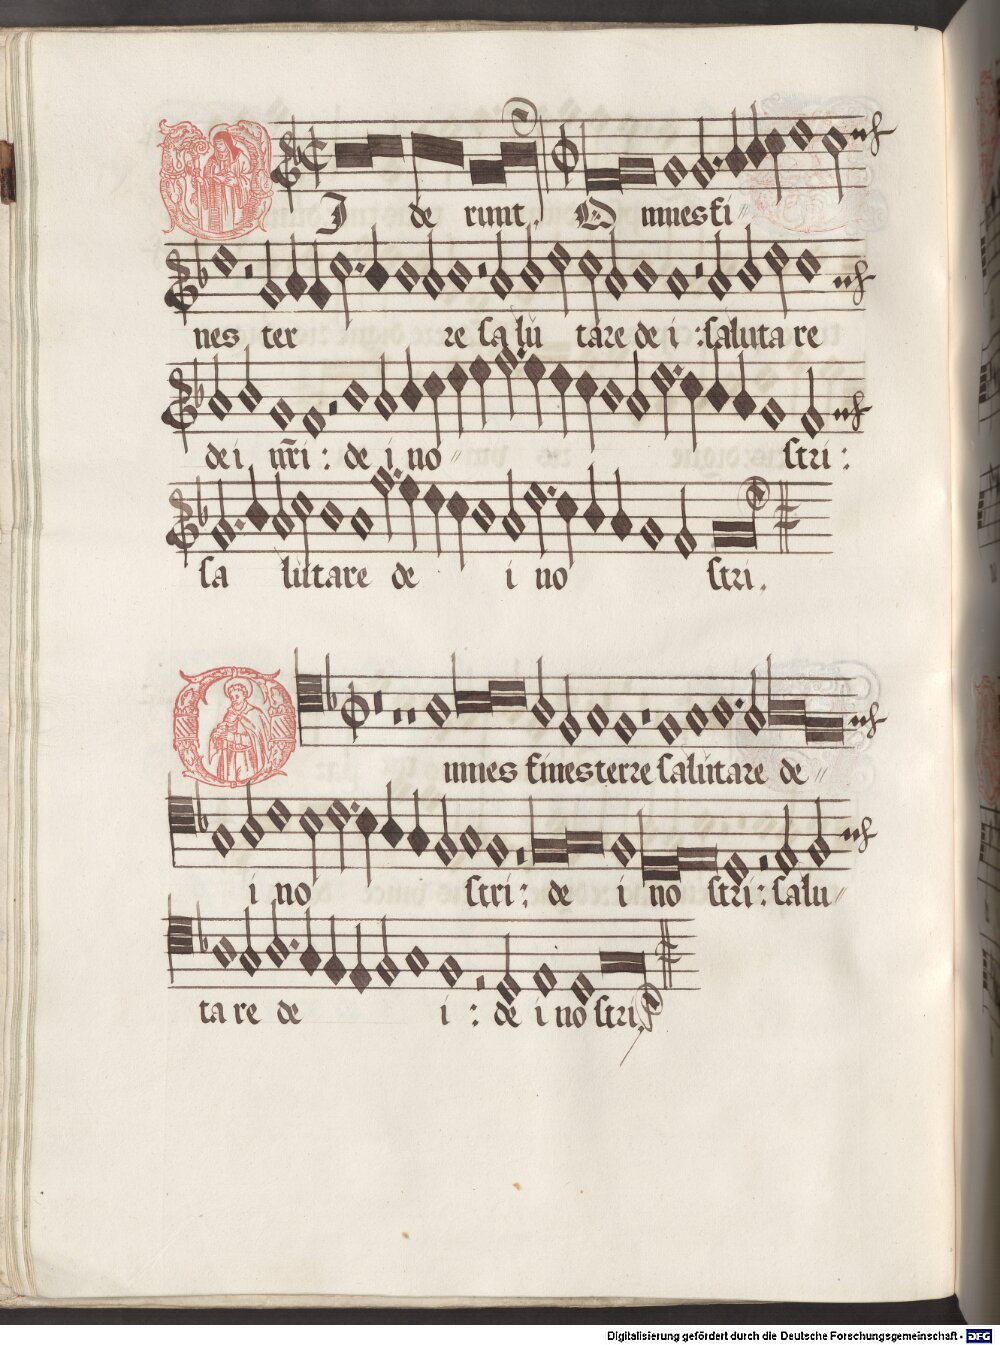 VI de runt. Omnes fi
nes ter re sa lu tare de i : saluta re
de i nr̃i : de i no stri :
sa lutare de i no stri.
Omnes fines terre salutare de
i no stri : de i no stri : salu
ta re de i : de i no stri.
Digitalisierung gefördert durch die Deutsche Forschungsgemeinschaft - DFG